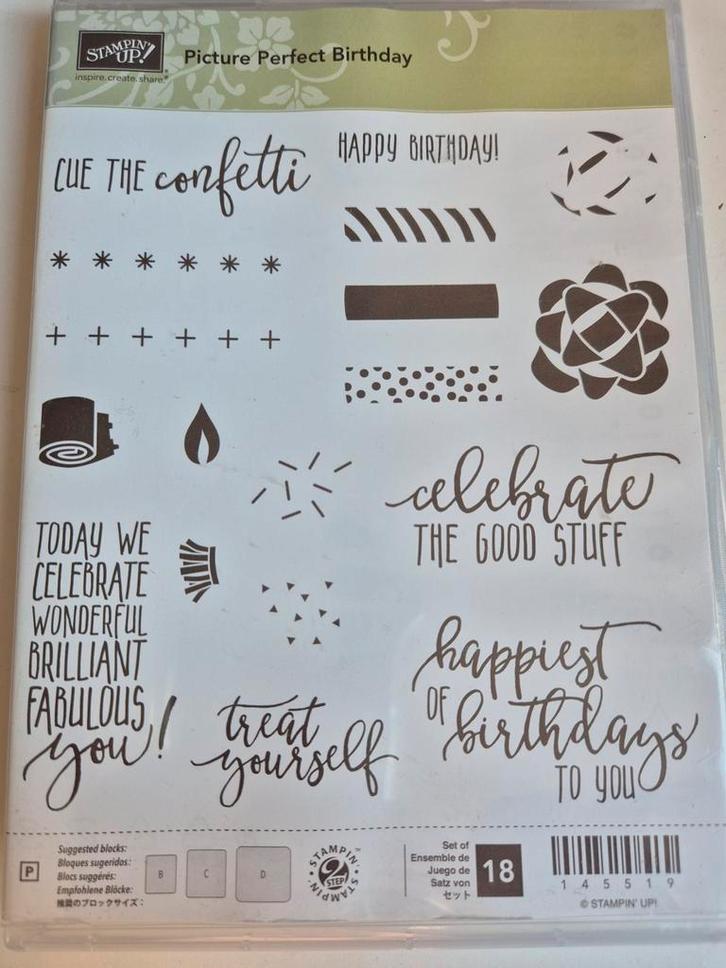 STAMPIN' UP!®
inspire.create.share.
Picture Perfect Birthday
CUE THE confetti
HAPPY BIRTHDAY!
celebrate
THE GOOD STUFF
TODAY WE
CELEBRATE
WONDERFUL
BRILLIANT
FABULOUS
you!
treat
yourself
happiest
OF birthdays
TO YOU
P
Suggested blocks:
Bloques sugeridos:
Blocs suggérés:
Empfohlene Blöcke:
推奨のブロックサイズ：
B
C
D
STAMPIN' 2 STEP STAMPIN'
Set of
Ensemble de
Juego de
Satz von
セット
18
145519
© STAMPIN' UP!